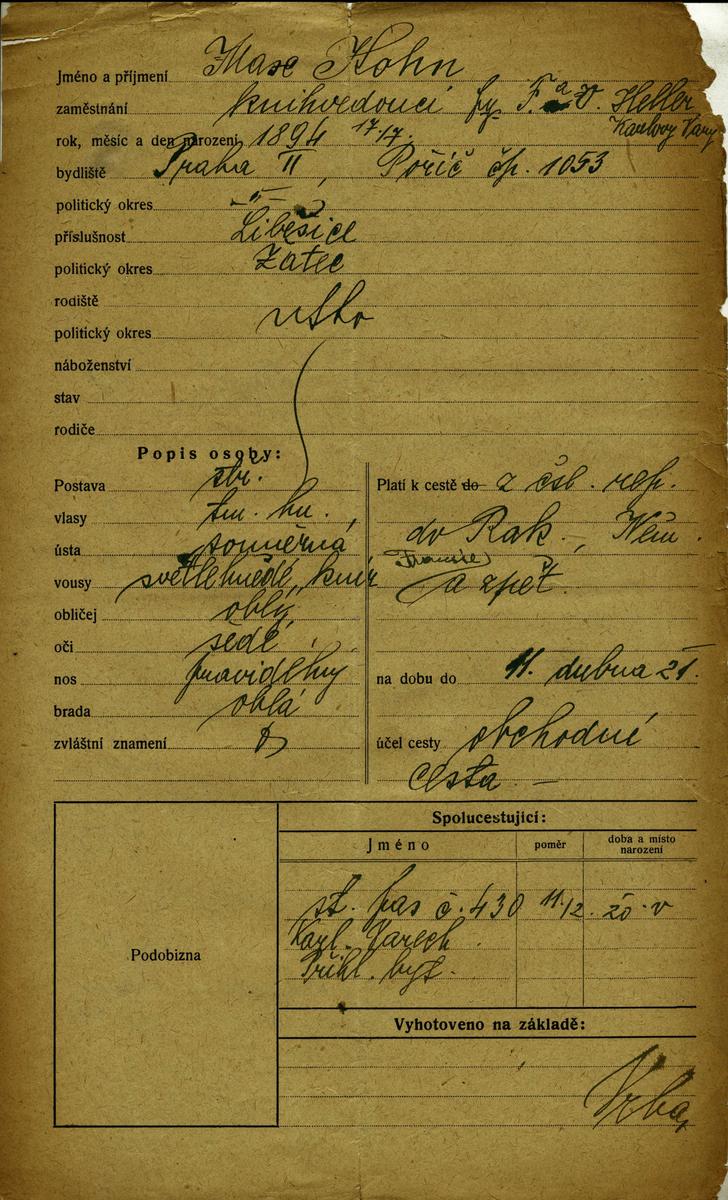 Jméno a příjmení Max Kohn
zaměstnání knihvedoucí fy F. a V. Heller
Karlovy Vary
rok, měsíc a den narození 1894 17/7.
bydliště Praha II, Poříč čp. 1053
politický okres -"-
příslušnost Liběšice
politický okres Žatec
rodiště
politický okres
náboženství
stav
rodiče
Popis osoby:
Postava stř.
vlasy tm. hn.
ústa souměrná
vousy světlehnědé, knír
obličej oblý
oči šedé
nos pravidelný
brada oblá
zvláštní znamení
Platí k cestě do z čsl. rep.
do Rak., Něm.
Francie
a zpět.
na dobu do 11. dubna 21.
účel cesty obchodní
cesta -
Spolucestující:
Jméno poměr doba a místo narození
st. pas č. 430 11./12. 20 v
Karl. Varech
Přihl. byt.
Podobizna
Vyhotoveno na základě:
Vrba